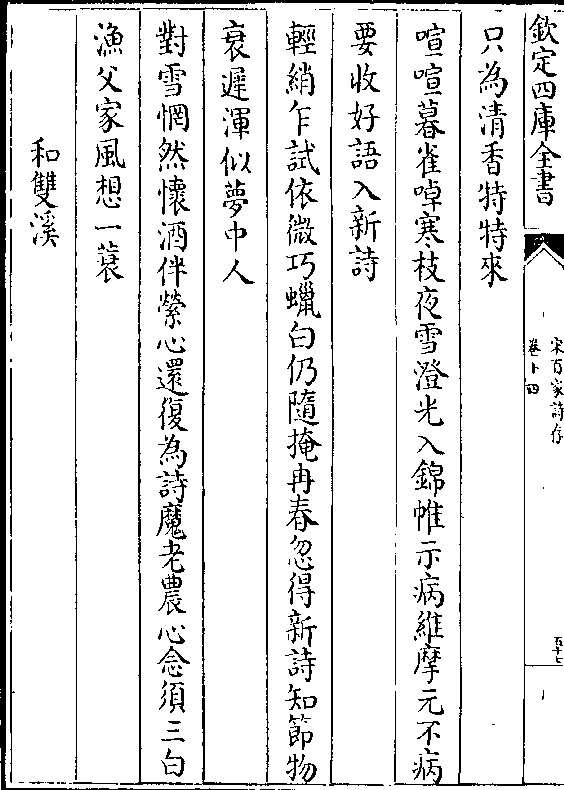 欽定四庫全書
宋百家詩存
卷十四
五十七
只為清香特特來
喧喧暮雀啅寒枝夜雪澄光入錦帷示病維摩元不病
要收好語入新詩
輕綃乍試依微巧蠟白仍隨掩冉春忽得新詩知節物
衰遲渾似夢中人
對雪惘然懷酒伴縈心還復為詩魔老農心念須三白
漁父家風想一蓑
和雙溪